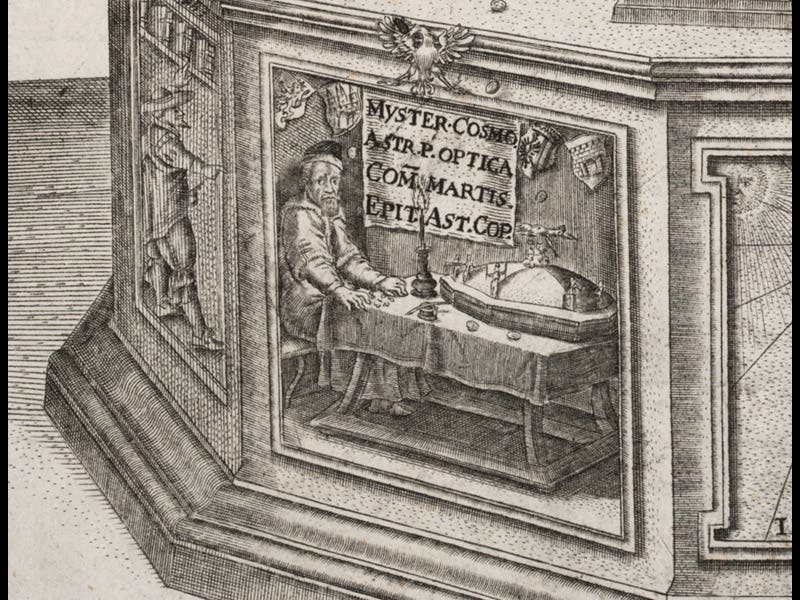 MYSTER·COSMO.
ASTR.P. OPTICA
COM̄. MARTIS.
EPIT. AST. COP.
I